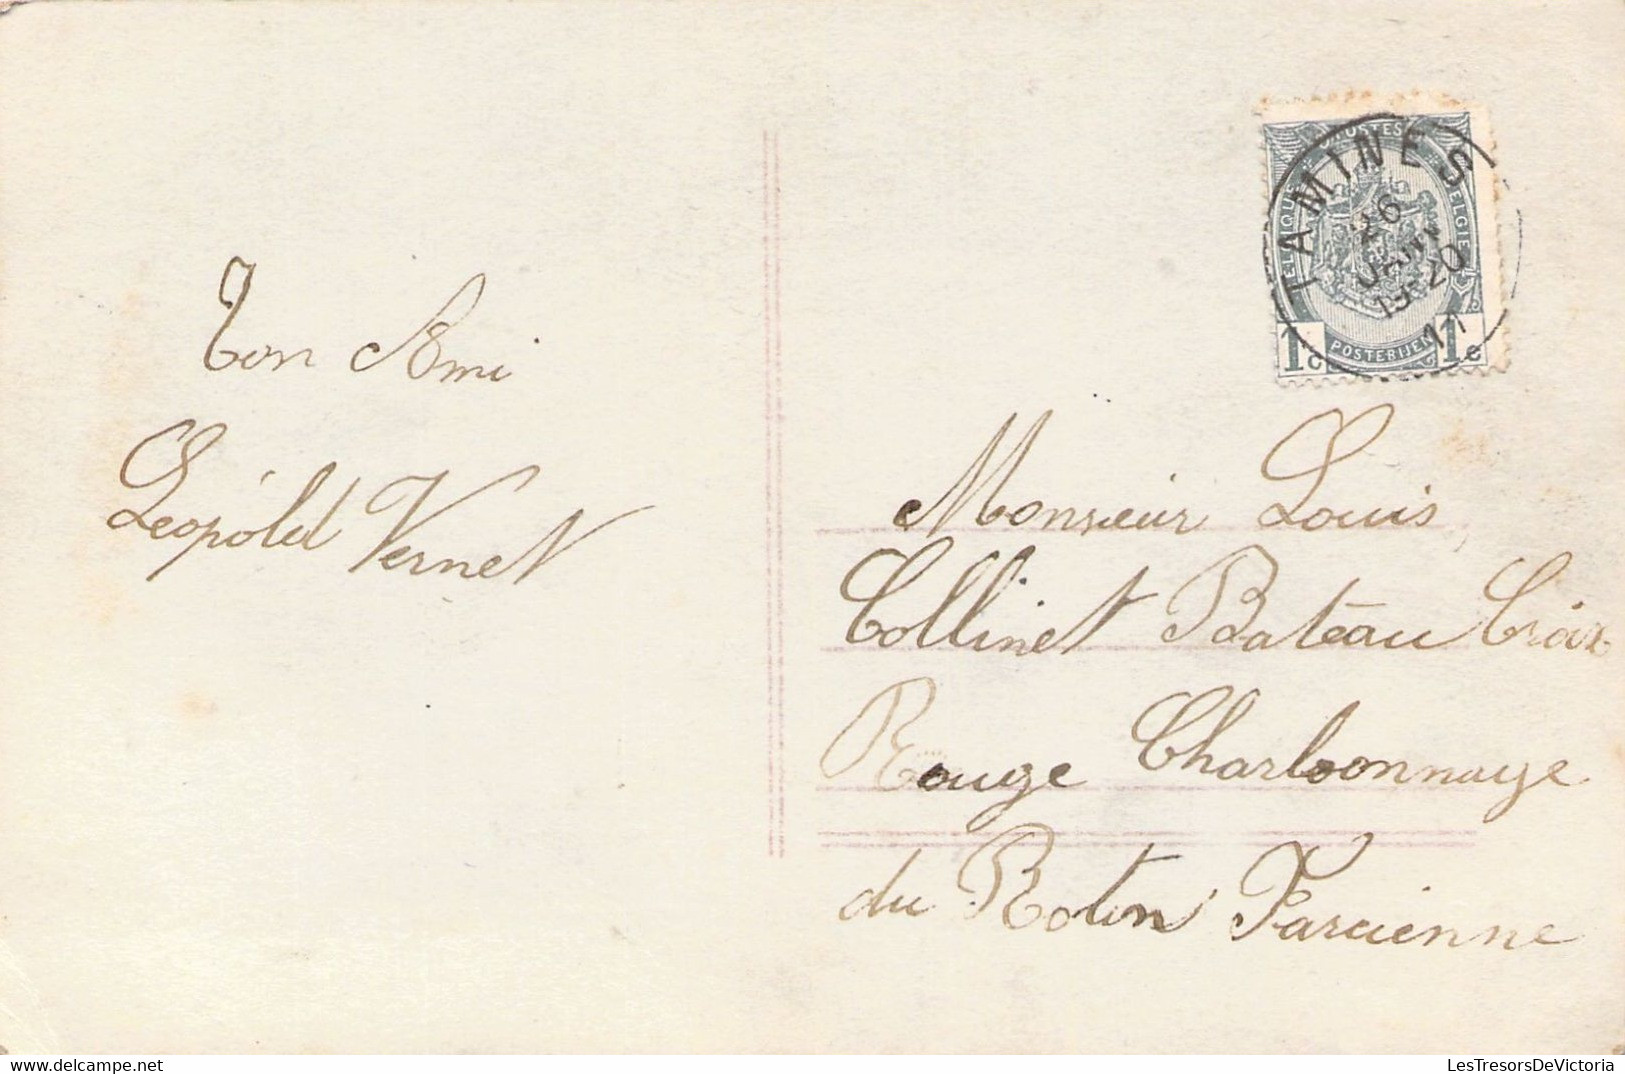 Ton Ami
Léopold Vernet
TAMINES
26
JUIN
19-20
11
POSTES
BELGIQUE
BELGIE
POSTERIJEN
1c
1c
Monsieur Louis
Collinet Bateau Croix
Rouge Charbonnaye
du Roton Farcienne
LesTresorsDeVictoria